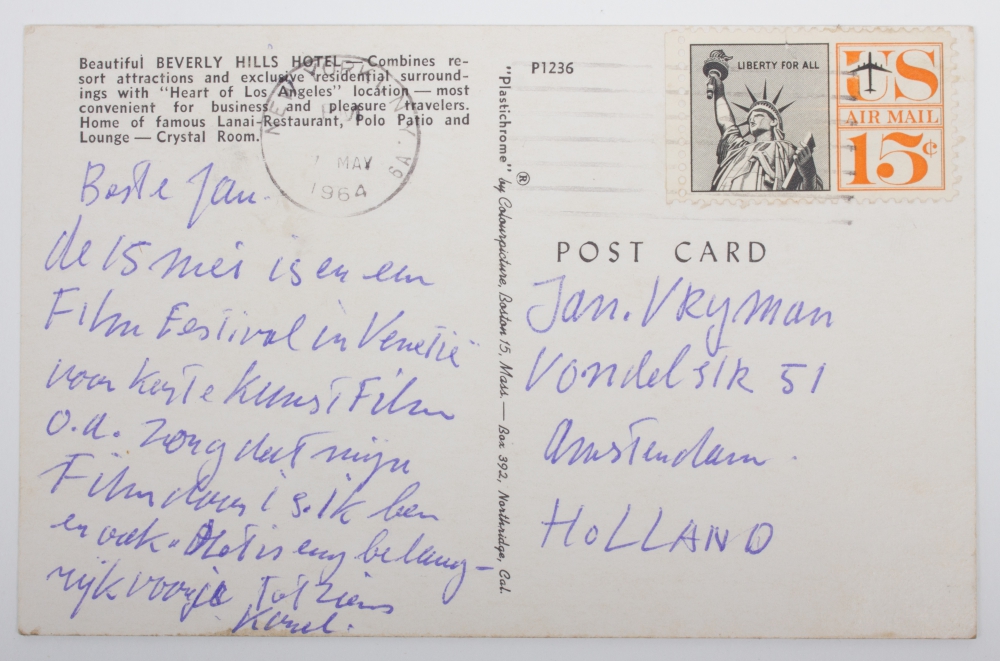 Beautiful BEVERLY HILLS HOTEL — Combines re-
sort attractions and exclusive residential surround-
ings with "Heart of Los Angeles" location — most
convenient for business and pleasure travelers.
Home of famous Lanai-Restaurant, Polo Patio and
Lounge — Crystal Room.
NEW YORK, N.Y.
PM
7 MAY
1964
Beste Jan.
de 15 mei is en een
Film Festival in Venetië
voor korte Kunst Film
o.a. zorg dat mijn
Film daar is. Ik ben
er ook. Het is erg belang-
rijk voor je Tot ziens
Karel.
"Plastichrome" ® by Colourpicture, Boston 15, Mass. — Box 392, Northridge, Cal.
P1236
LIBERTY FOR ALL
US
AIR MAIL
15¢
POST CARD
Jan. Vryman
Vondelstr 51
Amsterdam.
HOLLAND